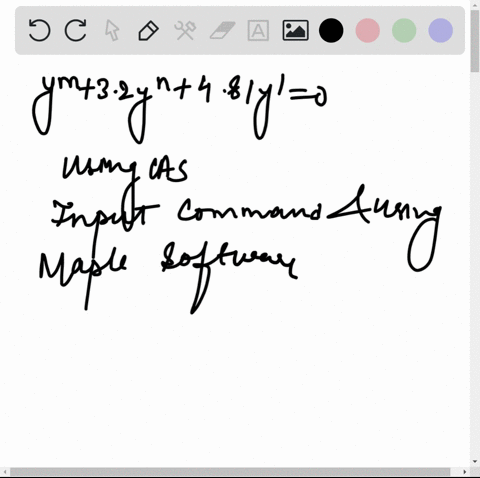 y^m+3.2y^n+4.81y'=0
Using CAS
Input Command & using
Maple Software